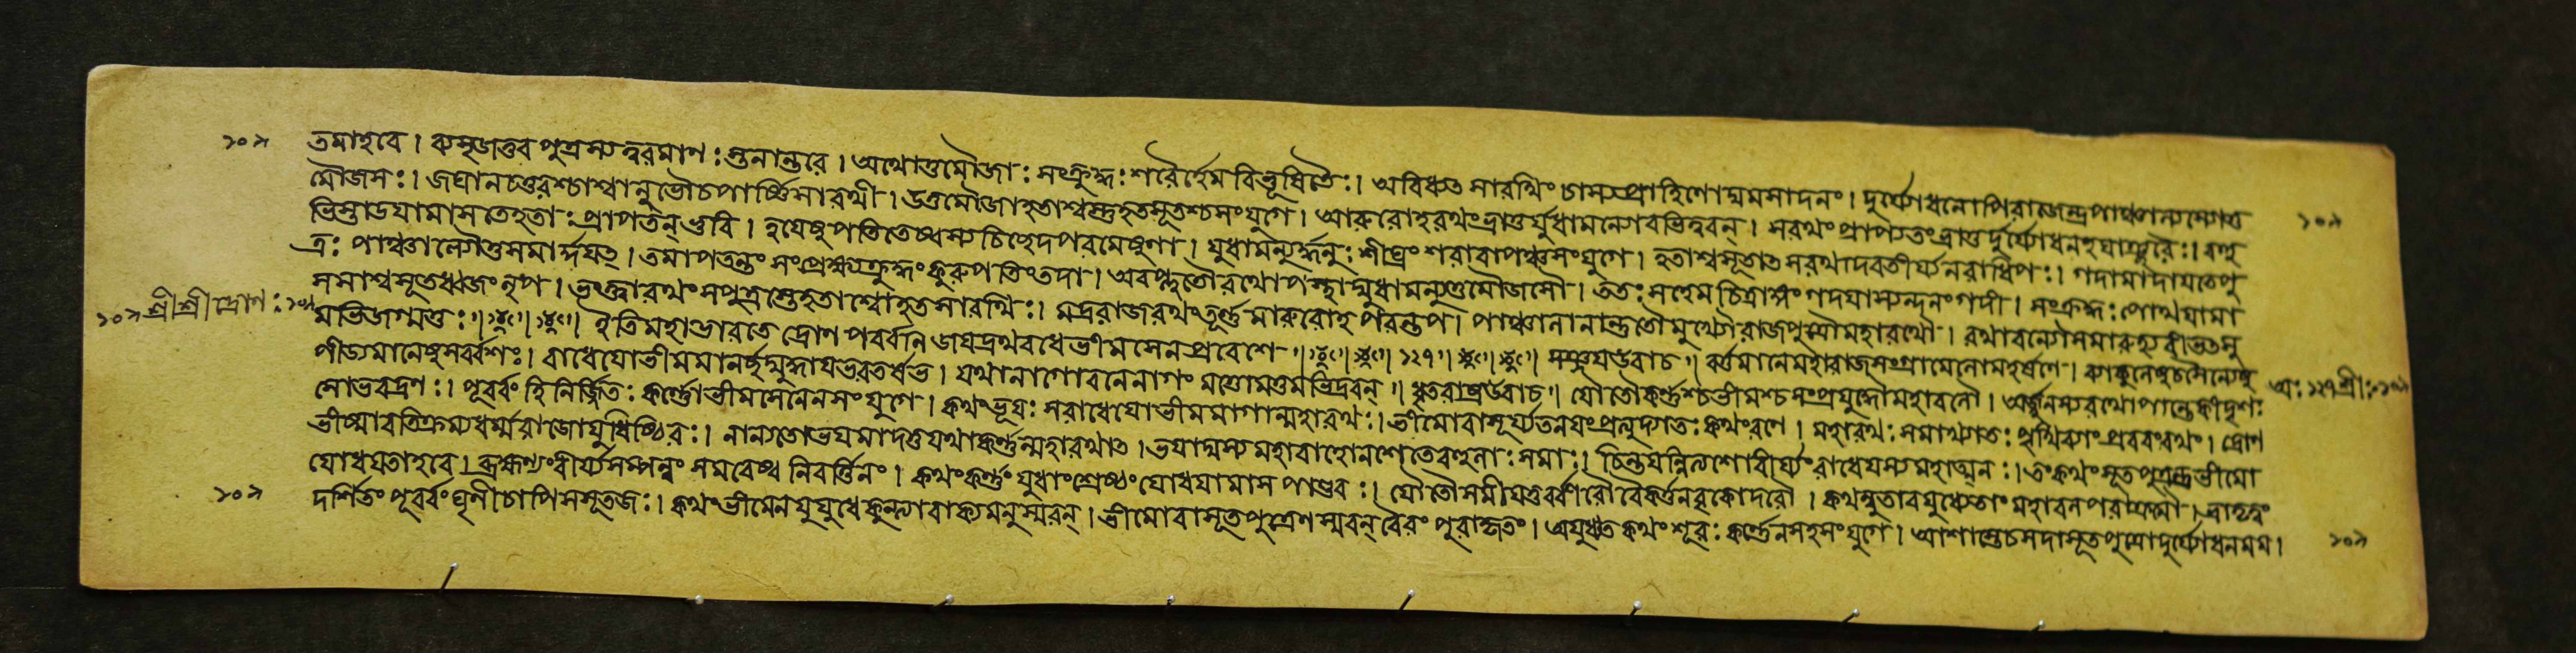 ১০৯ তমাহবে । ব্যসৃজত্তব পুত্রস্য ত্বরমাণঃ স্তনান্তরে । অথোত্তমৌজাঃ সংক্রুদ্ধঃ শরৈর্হেমবিভূষিতৈঃ । অবিধ্যত সারথিং চাস্য প্রাহিণোদ্যমসাদনং । দুর্য্যোধনোপি রাজেন্দ্র পাঞ্চাল্যস্যোত্ত
মৌজসঃ । জঘান চতুরশ্চাশ্বানুভৌ চ পার্ষ্ণিসারথী । উত্তমৌজা হতাশ্বস্তু হতসূতশ্চ সংযুগে । আরুরোহ রথং ভ্রাতুর্যুধামন্যোরভিত্বরন্ । স রথং প্রাপ্য তং ভ্রাতুর্দুর্য্যোধনহয়াঞ্ছরৈঃ । বহু
ভিস্তাডয়ামাস তে হতাঃ প্রাপতন্ ভুবি । হয়েষু পতিতেষ্বস্য চিচ্ছেদ পরমেষুণা । যুধামন্যুর্দ্ধনুঃ শীঘ্রং শরাবাপঞ্চ সংযুগে । হতাশ্বসূতাত্ স রথাদবতীর্য্য নরাধিপঃ । গদামাদায় তে পু
ত্রঃ পাঞ্চাল্যৌত্তসমার্দ্দয়ত্ । তমাপতন্তং সংপ্রেক্ষ্য ক্রুদ্ধং কুরুপতিং তদা । অবপ্লুতৌ রথোপস্থাদ্যুধামন্যূত্তমৌজসৌ । ততঃ স হেমচিত্রাঙ্গং গদয়া স্যন্দনং গদী । সংক্রুদ্ধঃ পোথয়ামা
স সাশ্বসূতধ্বজং নৃপ । ভংক্ত্বা রথং স পুত্রস্তে হতাশ্বো হতসারথিঃ । মদ্ররাজরথং তূর্ণ্ণমারুরোহ পরন্তপ । পাঞ্চালানান্তু তৌ মুখ্যৌ রাজপুত্রৌ মহারথৌ । রথাবন্যৌ সমারুহ্য বীভত্সু
১০৯ শ্রীশ্রীদ্রোণঃ ১০৯ মভিজগ্মতুঃ ॥ ইতি মহাভারতে দ্রোণপর্ব্বনি জয়দ্রথবধে ভীমসেনপ্রবেশে ॥ ১২৭ ॥ সঞ্জয়উবাচ ॥ বর্ত্তমানে মহারাজ সংগ্রামে লোমহর্ষণে । ব্যাকুলেষু চ সৈন্যেষু অঃ ১২৭ শ্রীঃ ১০৯
পীড্যমানেষু সর্ব্বশঃ । রাধেয়ো ভীমমানর্চ্ছদ্যুদ্ধায় ভরতর্ষভ । যথা নাগো বনে নাগং মত্তো মত্তমভিদ্রবন্ ॥ ধৃতরাষ্ট্রউবাচ ॥ যৌ তৌ কর্ণ্ণশ্চ ভীমশ্চ সংপ্রযুদ্ধৌ মহাবলৌ । অর্জ্জুনস্য রথোপান্তে কীদৃশঃ
সোভবদ্রণঃ । পূর্ব্বং হি নির্জ্জিতঃ কর্ণ্ণো ভীমসেনেন সংযুগে । কথং ভূয়ঃ স রাধেয়ো ভীমমাগান্মহারথঃ । ভীমো বা সূর্য্যতনয়ং প্রত্যুদ্গতঃ কথং রণে । মহারথঃ সমাখ্যাতঃ পৃথিব্যাং প্রবরং রথং । দ্রোণ
ভীষ্মাবতিক্রম্য ধর্ম্মরাজো যুধিষ্ঠিরঃ । নান্যতো ভয়মাদত্ত যথা কর্ণ্ণান্মহারথাত্ । ভয়াদ্যস্য মহাবাহো ন শেতে বহুলাঃ সমাঃ । চিন্তয়ন্নিত্যশো বীর্য্যং রাধেয়স্য মহাত্মনঃ । তং কথং সূতপুত্রন্তু ভীমো
যোধয়তাহবে । ব্রহ্মণ্যং বীর্য্যসম্পন্নং সমরেষ্বনিবর্ত্তিনং । কথং কর্ণ্ণং যুধাং শ্রেষ্ঠং যোধয়ামাস পাণ্ডবঃ । যৌ তৌ সমীয়তুর্ব্বীরৌ বৈকর্ত্তনবৃকোদরৌ । কথন্নু তাবযুধ্যেতাং মহাবলপরাক্রমৌ । ভ্রাতৃত্বং
১০৯ দর্শিতং পূর্ব্বং ঘৃণী চাপি স সূতজঃ । কথং ভীমেন যুযুধে কুন্ত্যা বাক্যমনুস্মরন্ । ভীমো বা সূতপুত্রেণ স্মরন্ বৈরং পুরাকৃতং । অযুধ্যত কথং শূরঃ কর্ণ্ণেন সহ সংযুগে । আশাস্তে চ সদা সূতপুত্রো দুর্য্যোধনমম । ১০৯